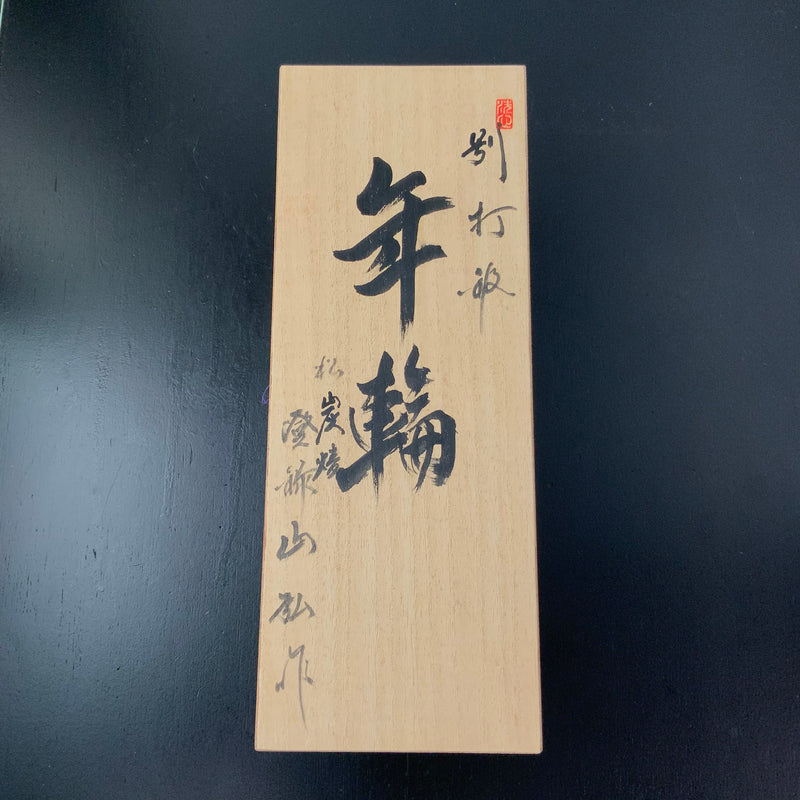 別打
年輪
松炭焼
登録 山弘作